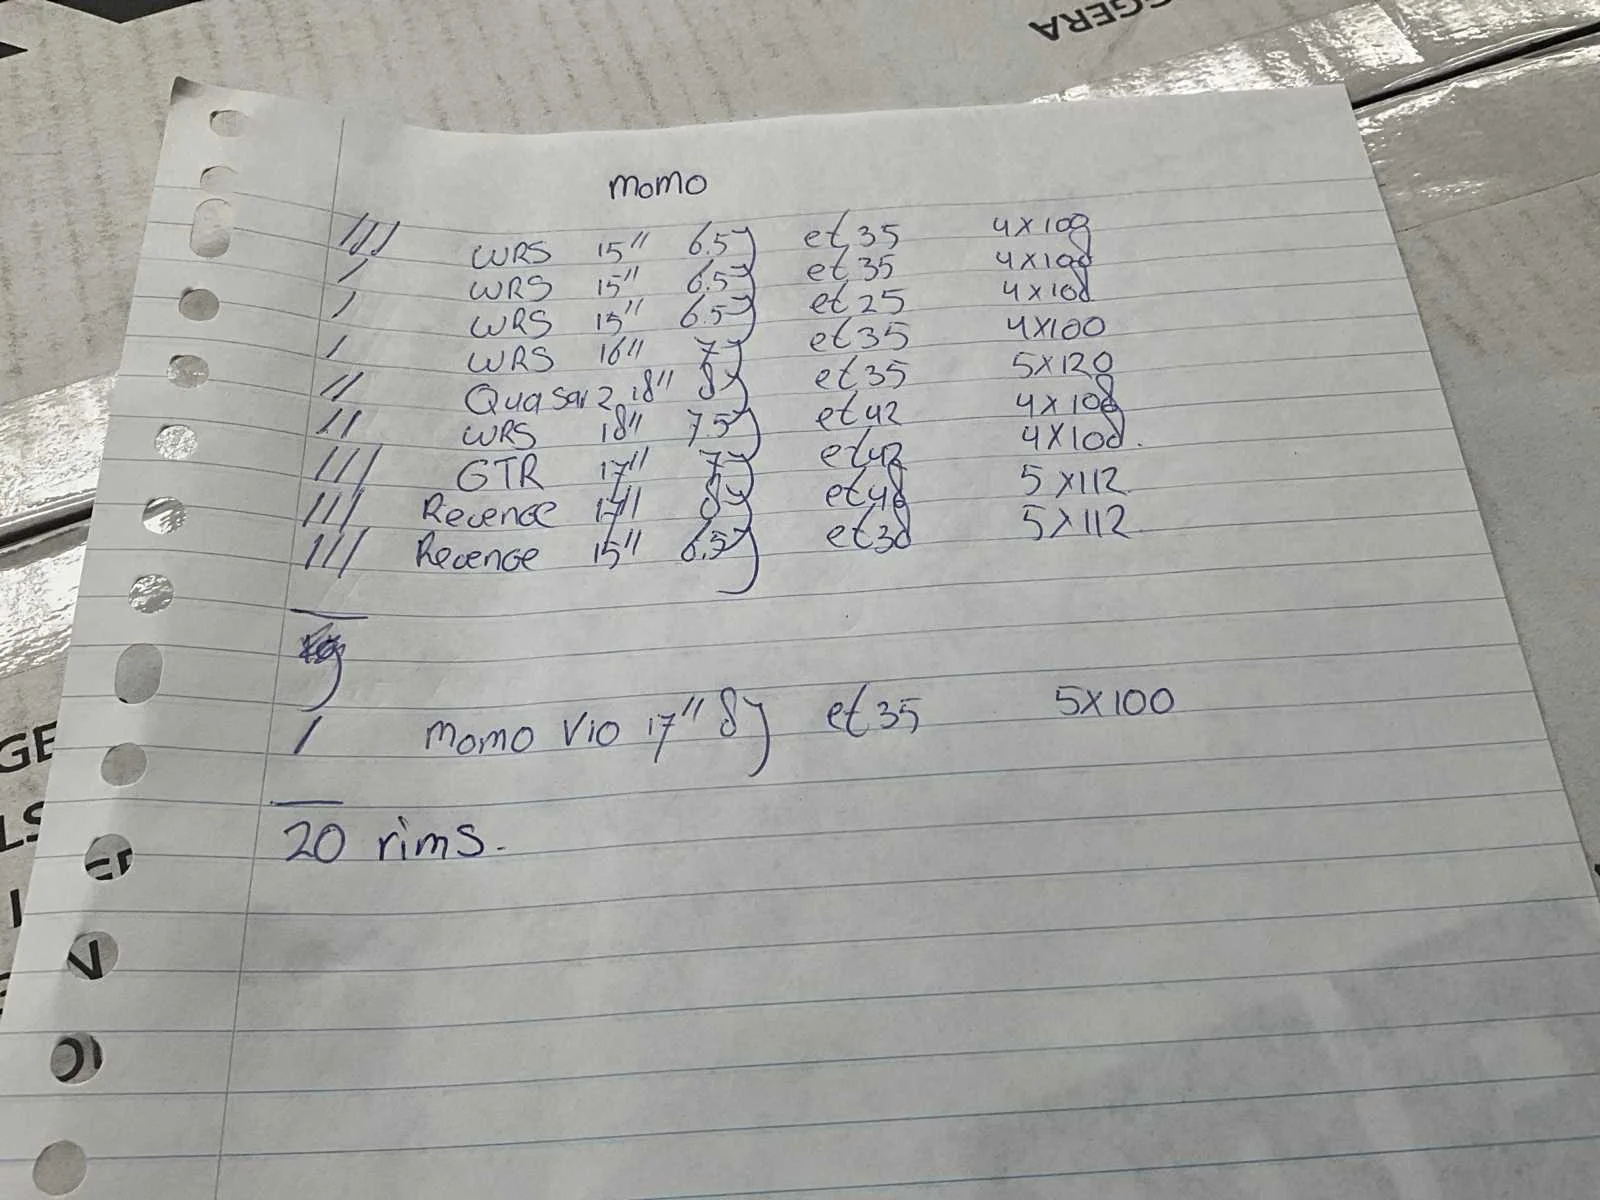 GGERA
momo
/// WRS 15" 6.5J et 35 4x108
/ WRS 15" 6.5J et 35 4x108
/ WRS 15" 6.5J et 25 4x108
/ WRS 16" 7J et 35 4x100
// Quasar 2 18" 8J et 35 5x120
// WRS 18" 7.5J et 42 4x108
/// GTR 17" 7J et 42 4x108.
/// Revenge 17" 8J et 48 5x112
/// Revenge 15" 6.5J et 38 5x112
/ momo Vio 17" 8J et 35 5x100
20 rims.